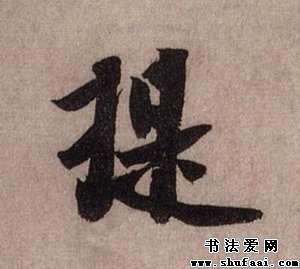 提
书法爱网
www.shufaai.com